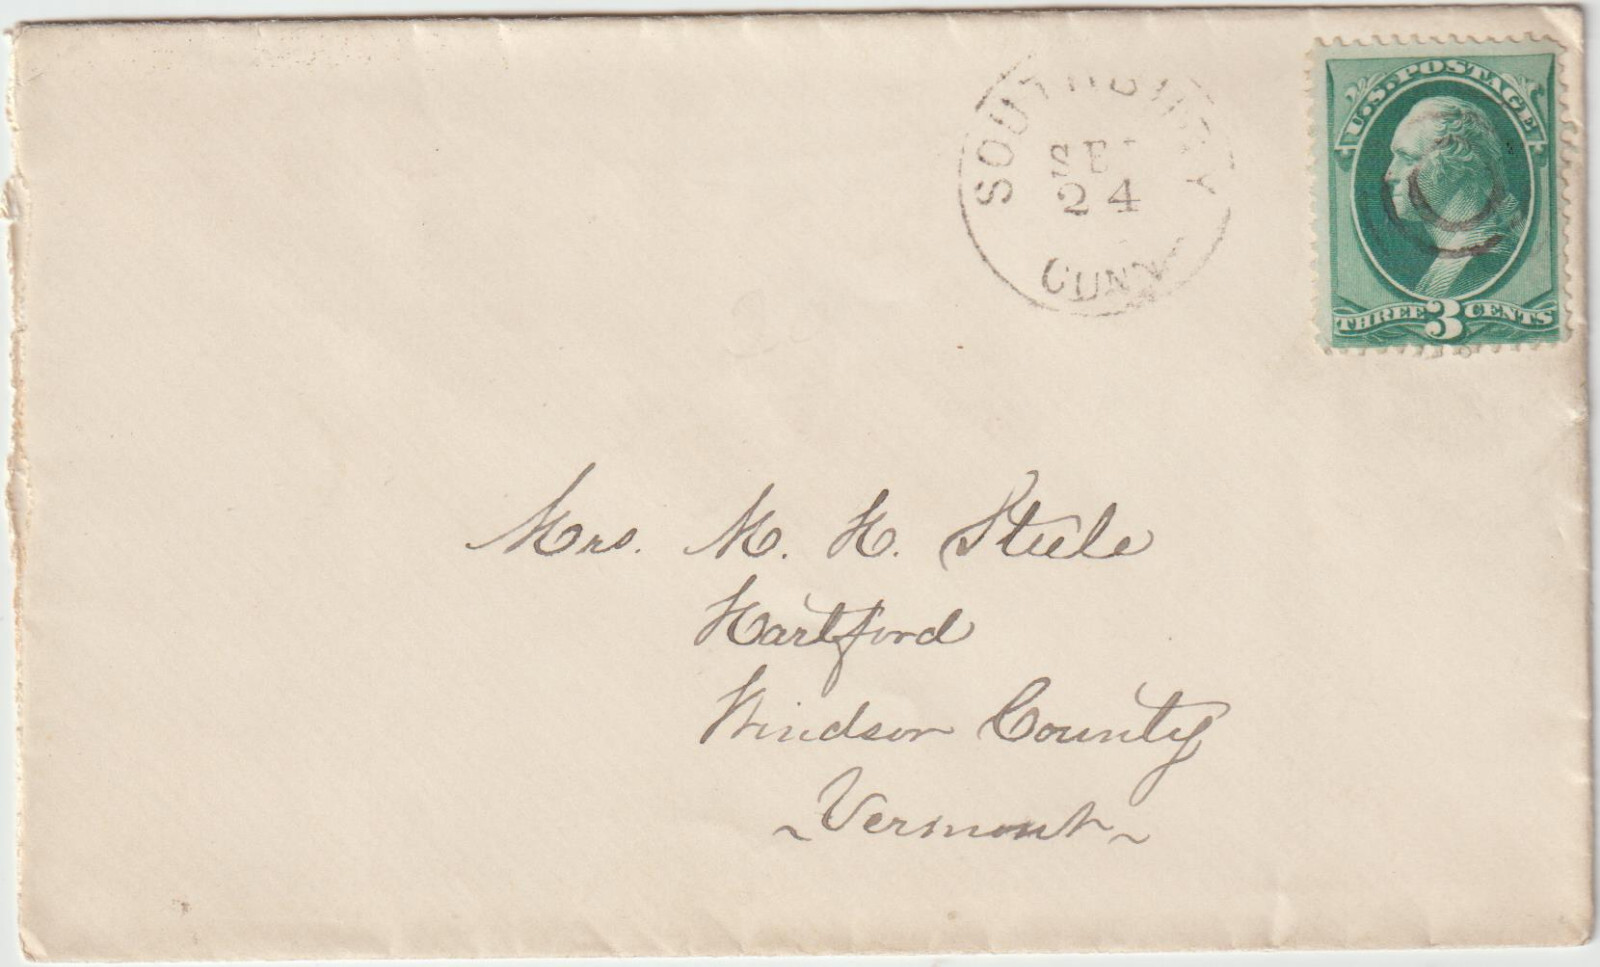 SOUTHBURY
SEP
24
CONN
U.S. POSTAGE
THREE 3 CENTS
Mrs. M. H. Steele
Hartford
Windsor County
~Vermont~